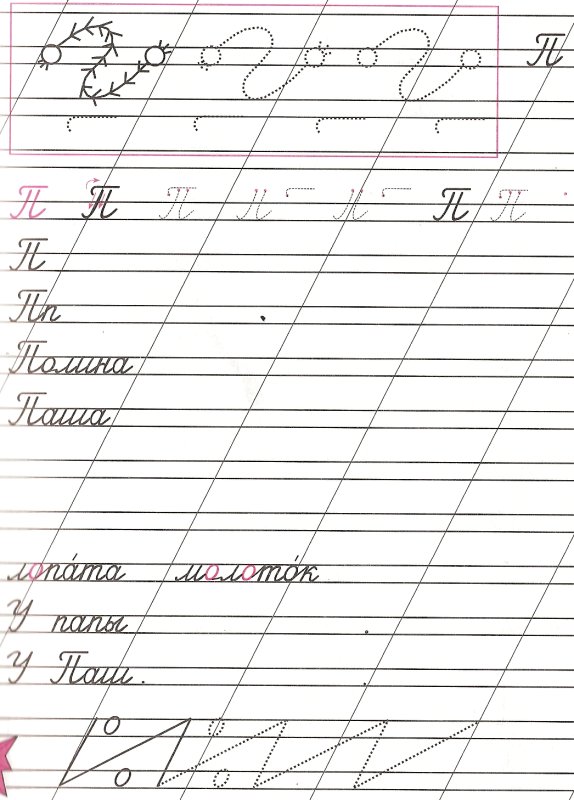 П
П П П П П
П
Пп
Полина
Паша
лопа́та молото́к
У папы .
У Паш . .